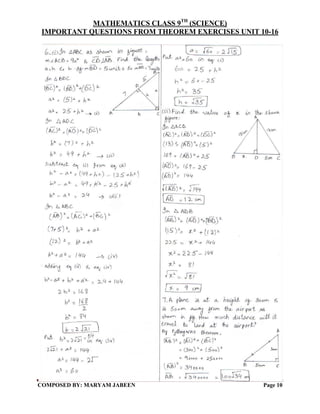 MATHEMATICS CLASS 9TH (SCIENCE)
IMPORTANT QUESTIONS FROM THEOREM EXERCISES UNIT 10-16
6.(i) In △ABC as shown in figure,
m∠ACB = 90° & CD⊥AB. Find the length
a, h & b if mBD = 5units & mAD = 7units
In △BDC
(BC)² = (BD)² + (DC)²
a² = (5)² + h²
a² = 25 + h² → (i)
In △ADC
(AC)² = (AD)² + (DC)²
b² = (7)² + h²
b² = 49 + h² → (ii)
Subtract eq (i) from eq (ii)
b² - a² = (49 + h²) - (25 + h²)
b² - a² = 49 + h² - 25 - h²
b² - a² = 24 → (iii)
In △ABC
(AB)² = (AC)² + (BC)²
(7+5)² = b² + a²
(12)² = b² + a²
b² + a² = 144 → (iv)
adding eq (iii) & eq (iv)
b² - a² + b² + a² = 24 + 144
2b² = 168
b² = 168
2
b² = 84
b = 2√21
Put b² = 84 in eq (iv)
a² = 60
Put a² = 60 in eq (i)
a = √60 = 2√15
60 = 25 + h²
h² = 60 - 25
h² = 35
h = √35
(ii) Find the value of x in the shown
figure:
In △ACD
(AC)² = (AD)² + (DC)²
(13)² = (AD)² + (5)²
169 = (AD)² + 25
(AD)² = 169 - 25
(AD)² = 144
√(AD)² = √144
AD = 12 cm
In △ADB
(AB)² = (AD)² + (BD)²
(15)² = x² + (12)²
225 = x² + 144
x² = 225 - 144
x² = 81
√x² = √81
x = 9 cm
7. A plane is at a height of 300m &
is 500m away from the airport as
shown in fig. How much distance will it
travel to land at the airport?
By Pythagoras theorem,
COMPOSED BY: MARYAM JABEEN
Page 10